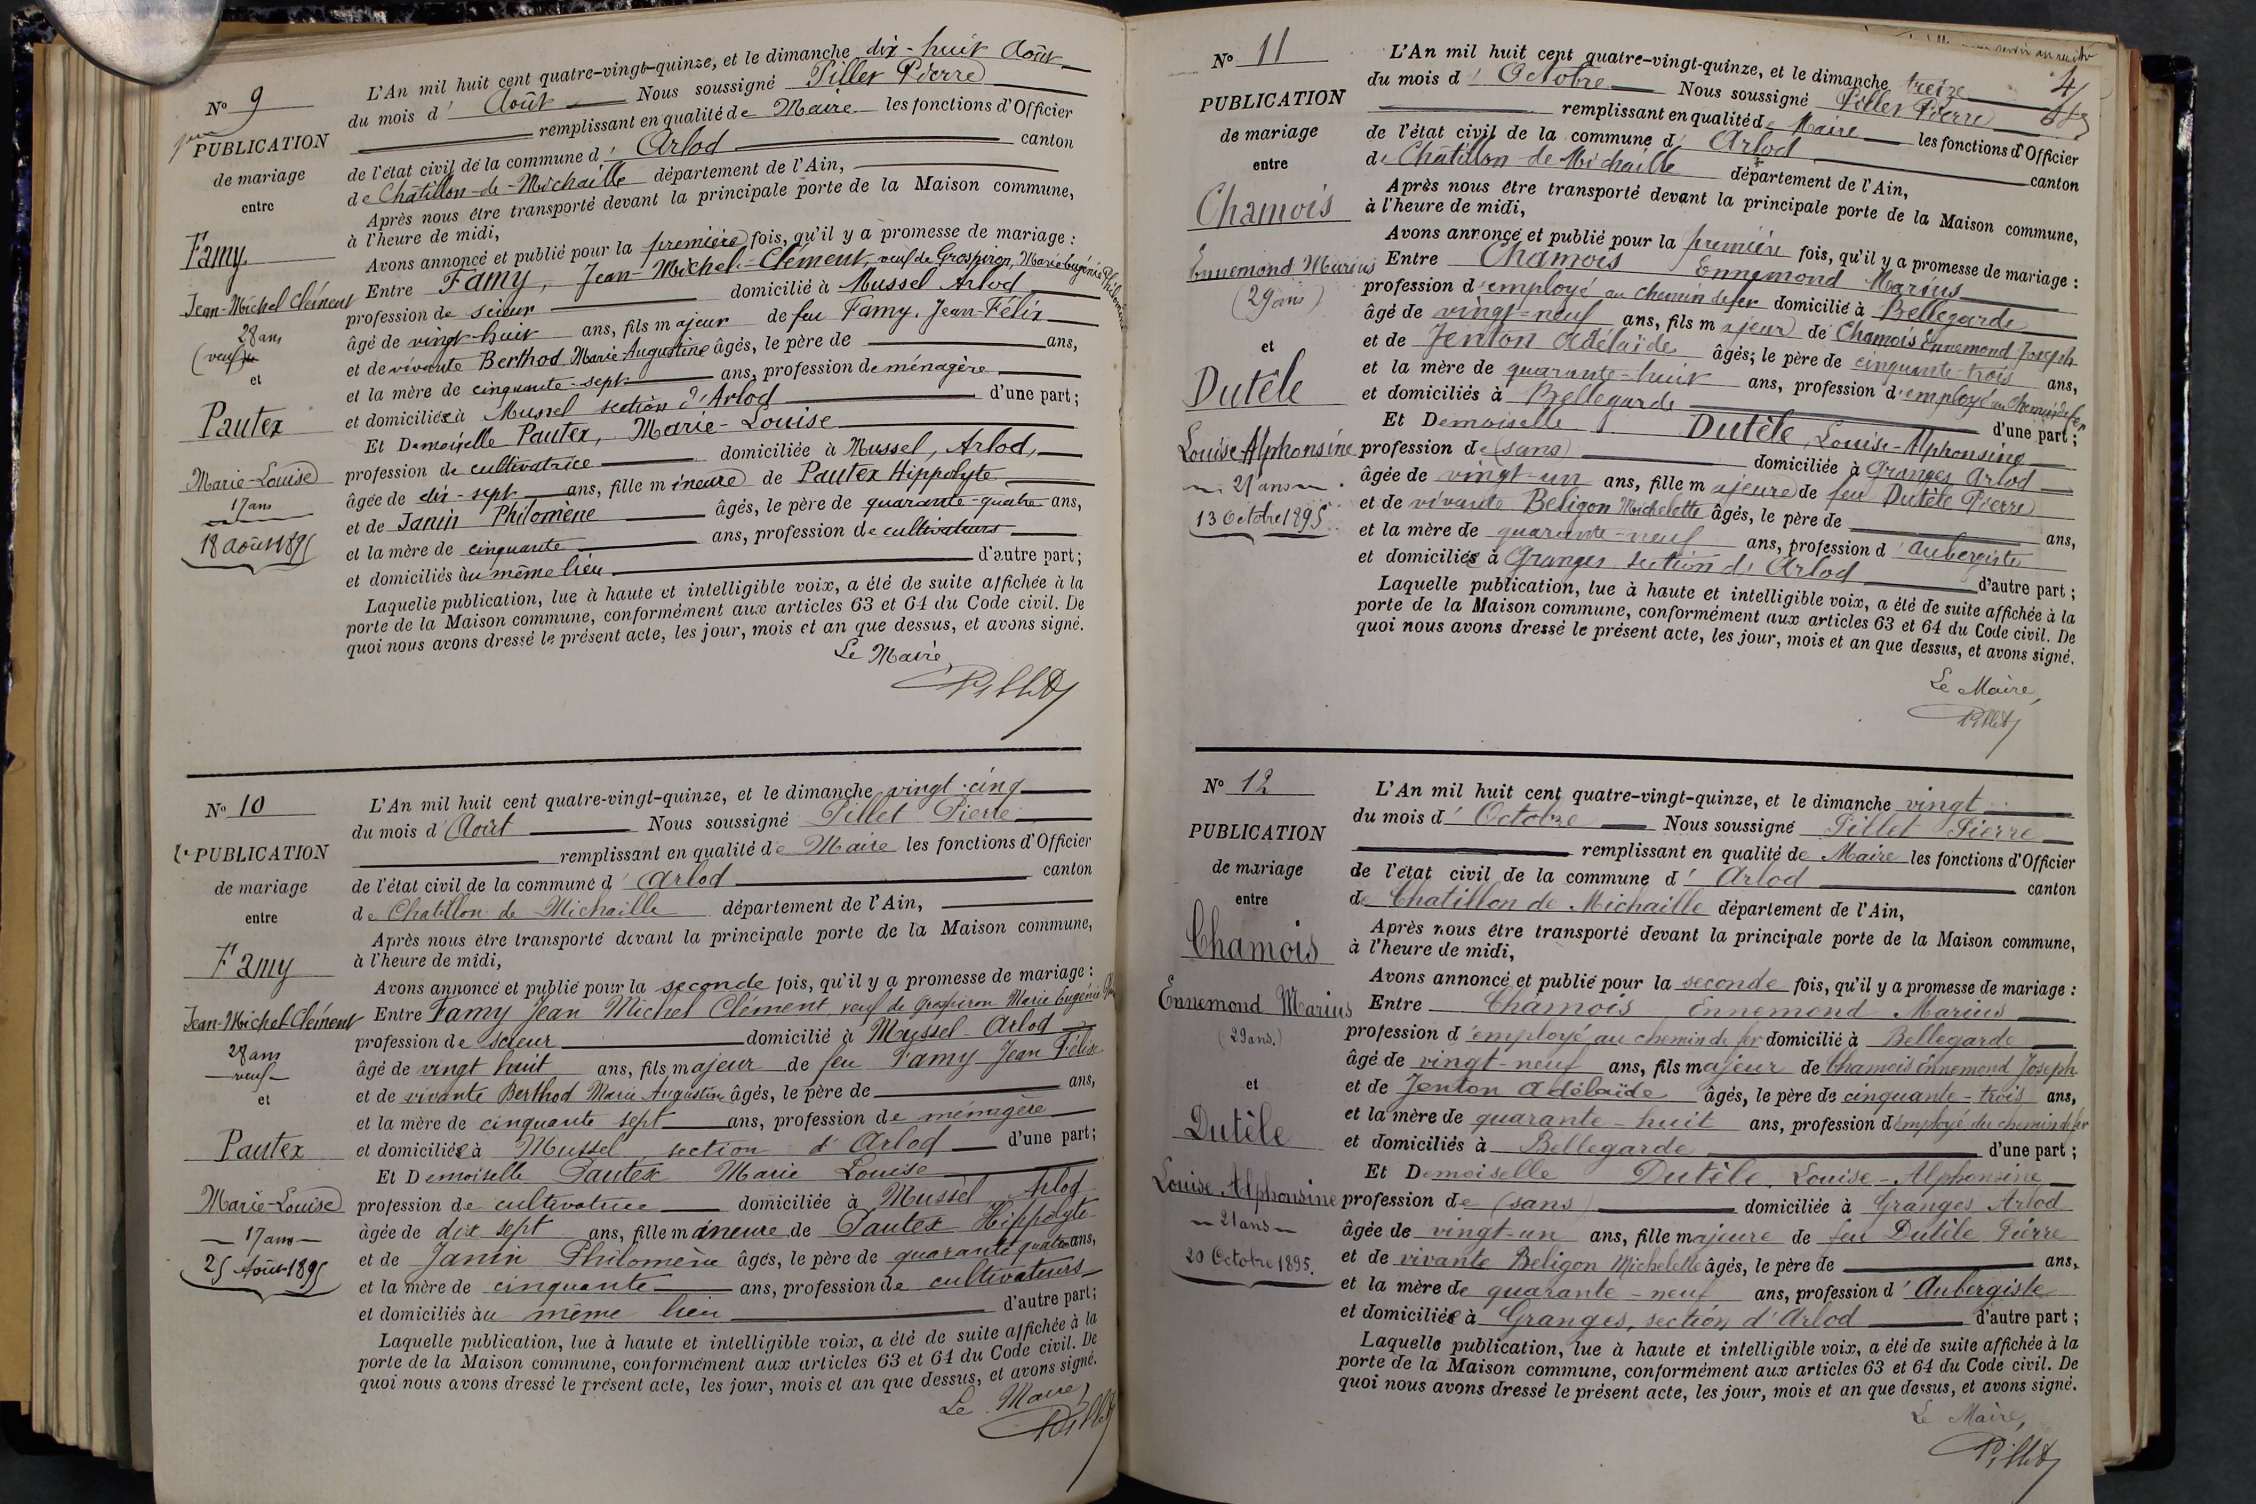 N° 9
PUBLICATION
de mariage
entre
Famy
Jean-Michel Clément
28 ans
(veuf)
et
Pautex
Marie-Louise
17 ans
18 août 1895
L'An mil huit cent quatre-vingt-quinze, et le dimanche dix-huit Août
du mois d' Août Nous soussigné Pillet Pierre
remplissant en qualité de Maire les fonctions d'Officier
de l'état civil de la commune d' Arlod canton
de Châtillon-de-Michaille département de l'Ain,
Après nous être transporté devant la principale porte de la Maison commune,
à l'heure de midi,
Avons annoncé et publié pour la première fois, qu'il y a promesse de mariage :
Entre Famy, Jean-Michel-Clément, veuf de Grospiron, Marie Eugénie Philomène
profession de scieur domicilié à Mussel Arlod
âgé de vingt-huit ans, fils majeur de feu Famy, Jean-Félix
et de vivante Berthod Marie Augustine âgés, le père de ans,
et la mère de cinquante-sept ans, profession de ménagère
et domiciliée à Mussel section d'Arlod d'une part;
Et Demoiselle Pautex, Marie-Louise
profession de cultivatrice domiciliée à Mussel, Arlod,
âgée de dix-sept ans, fille mineure de Pautex Hippolyte
et de Janin Philomène âgés, le père de quarante-quatre ans,
et la mère de cinquante ans, profession de cultivateurs
et domiciliés au même lieu d'autre part;
Laquelle publication, lue à haute et intelligible voix, a été de suite affichée à la
porte de la Maison commune, conformément aux articles 63 et 64 du Code civil. De
quoi nous avons dressé le présent acte, les jour, mois et an que dessus, et avons signé.
Le Maire
Pillet
N° 10
PUBLICATION
de mariage
entre
Famy
Jean-Michel Clément
28 ans
veuf
et
Pautex
Marie-Louise
17 ans
25 Août 1895
L'An mil huit cent quatre-vingt-quinze, et le dimanche vingt-cinq
du mois d' Août Nous soussigné Pillet Pierre
remplissant en qualité de Maire les fonctions d'Officier
de l'état civil de la commune d' Arlod canton
de Chatillon de Michaille département de l'Ain,
Après nous être transporté devant la principale porte de la Maison commune,
à l'heure de midi,
Avons annoncé et publié pour la seconde fois, qu'il y a promesse de mariage :
Entre Famy Jean Michel Clément, veuf de Grospiron Marie Eugénie
profession de scieur domicilié à Mussel-Arlod
âgé de vingt huit ans, fils majeur de feu Famy Jean Félix
et de vivante Berthod Marie Augustine âgés, le père de ans,
et la mère de cinquante sept ans, profession de ménagère
et domiciliée à Mussel, section d'Arlod d'une part;
Et Demoiselle Pautex Marie Louise
profession de cultivatrice domiciliée à Mussel Arlod
âgée de dix sept ans, fille mineure de Pautex Hippolyte
et de Janin Philomène âgés, le père de quarante quatre ans,
et la mère de cinquante ans, profession de cultivateurs
et domiciliés au même lieu d'autre part;
Laquelle publication, lue à haute et intelligible voix, a été de suite affichée à la
porte de la Maison commune, conformément aux articles 63 et 64 du Code civil. De
quoi nous avons dressé le présent acte, les jour, mois et an que dessus, et avons signé.
Le Maire
Pillet
N° 11
PUBLICATION
de mariage
entre
Chamois
Ennemond Marius
(29 ans)
et
Dutèle
Louise-Alphonsine
21 ans
13 Octobre 1895
L'An mil huit cent quatre-vingt-quinze, et le dimanche treize
du mois d' Octobre Nous soussigné Pillet Pierre
remplissant en qualité de Maire les fonctions d'Officier
de l'état civil de la commune d' Arlod canton
de Châtillon-de-Michaille département de l'Ain,
Après nous être transporté devant la principale porte de la Maison commune,
à l'heure de midi,
Avons annoncé et publié pour la première fois, qu'il y a promesse de mariage :
Entre Chamois Ennemond Marius
profession d'employé au chemin de fer domicilié à Bellegarde
âgé de vingt-neuf ans, fils majeur de Chamois Ennemond Joseph
et de Jenton Adélaïde âgés, le père de cinquante-trois ans,
et la mère de quarante-huit ans, profession d'employé au chemin de fer
et domiciliés à Bellegarde d'une part;
Et Demoiselle Dutèle, Louise-Alphonsine
profession de (sans) domiciliée à Granges Arlod
âgée de vingt-un ans, fille majeure de feu Dutèle Pierre
et de vivante Beligon Michelette âgés, le père de ans,
et la mère de quarante-neuf ans, profession d'aubergiste
et domiciliée à Granges section d'Arlod d'autre part;
Laquelle publication, lue à haute et intelligible voix, a été de suite affichée à la
porte de la Maison commune, conformément aux articles 63 et 64 du Code civil. De
quoi nous avons dressé le présent acte, les jour, mois et an que dessus, et avons signé.
Le Maire,
Pillet
N° 12
PUBLICATION
de mariage
entre
Chamois
Ennemond Marius
(29 ans.)
et
Dutèle
Louise Alphonsine
21 ans
20 Octobre 1895.
L'An mil huit cent quatre-vingt-quinze, et le dimanche vingt
du mois d' Octobre Nous soussigné Pillet Pierre
remplissant en qualité de Maire les fonctions d'Officier
de l'état civil de la commune d' Arlod canton
de Chatillon de Michaille département de l'Ain,
Après nous être transporté devant la principale porte de la Maison commune,
à l'heure de midi,
Avons annoncé et publié pour la seconde fois, qu'il y a promesse de mariage :
Entre Chamois Ennemond Marius
profession d'employé au chemin de fer domicilié à Bellegarde
âgé de vingt-neuf ans, fils majeur de Chamois Ennemond Joseph
et de Jenton Adélaïde âgés, le père de cinquante-trois ans,
et la mère de quarante-huit ans, profession d'employé du chemin de fer
et domiciliés à Bellegarde d'une part;
Et Demoiselle Dutèle, Louise-Alphonsine
profession de (sans) domiciliée à Granges Arlod
âgée de vingt-un ans, fille majeure de feu Dutèle Pierre
et de vivante Beligon Michelette âgés, le père de ans,
et la mère de quarante-neuf ans, profession d'Aubergiste
et domiciliée à Granges, section d'Arlod d'autre part;
Laquelle publication, lue à haute et intelligible voix, a été de suite affichée à la
porte de la Maison commune, conformément aux articles 63 et 64 du Code civil. De
quoi nous avons dressé le présent acte, les jour, mois et an que dessus, et avons signé.
Le Maire,
Pillet